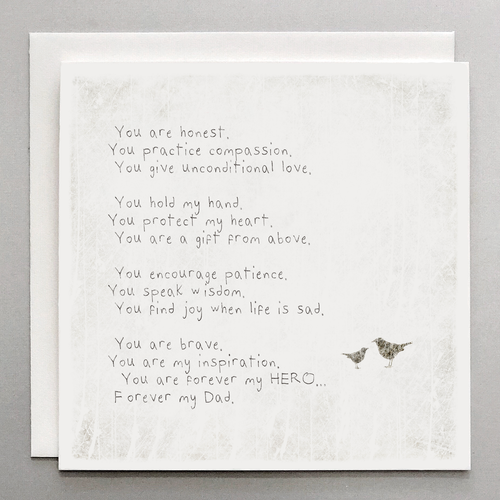 You are honest.
You practice compassion.
You give unconditional love.
You hold my hand.
You protect my heart.
You are a gift from above.
You encourage patience.
You speak wisdom.
You find joy when life is sad.
You are brave.
You are my inspiration.
You are forever my HERO...
Forever my Dad.